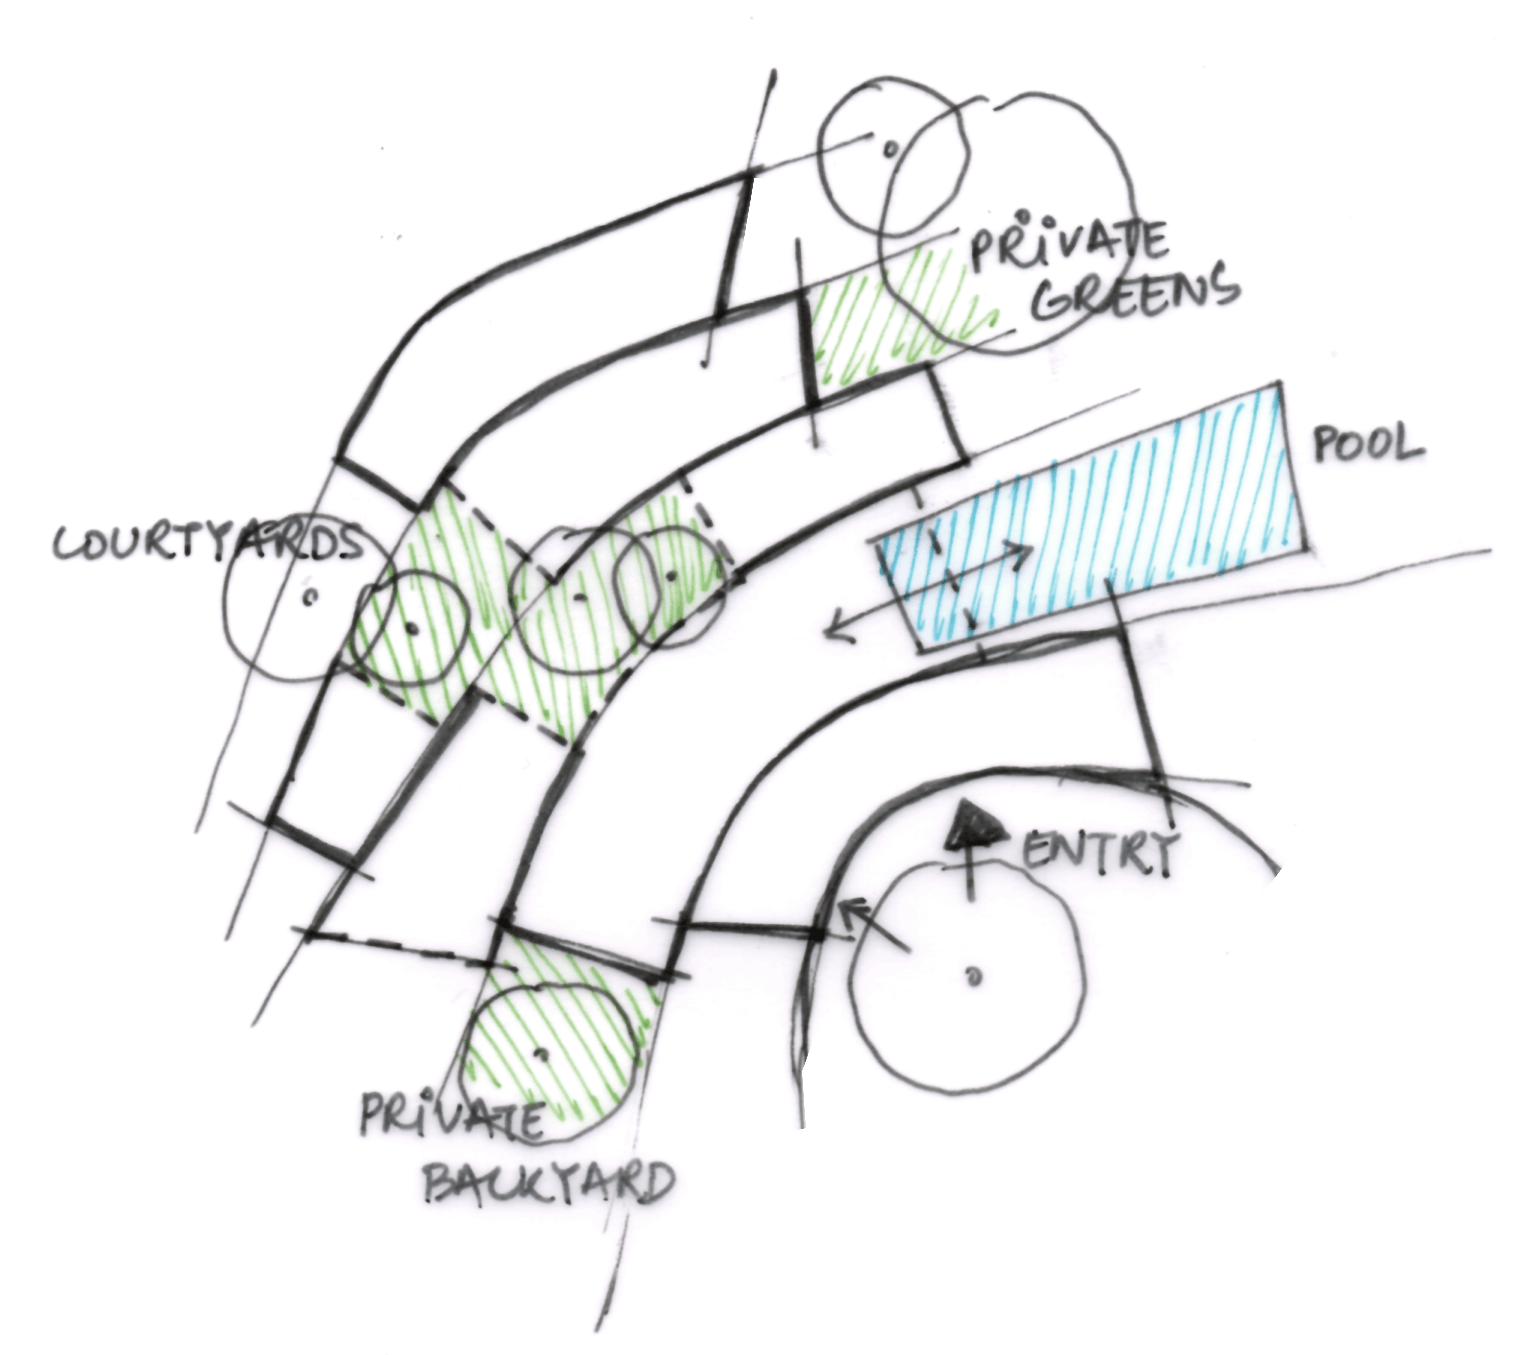 PRiVATE
GREENS
POOL
COURTYARDS
ENTRY
PRiVATE
BACKYARD